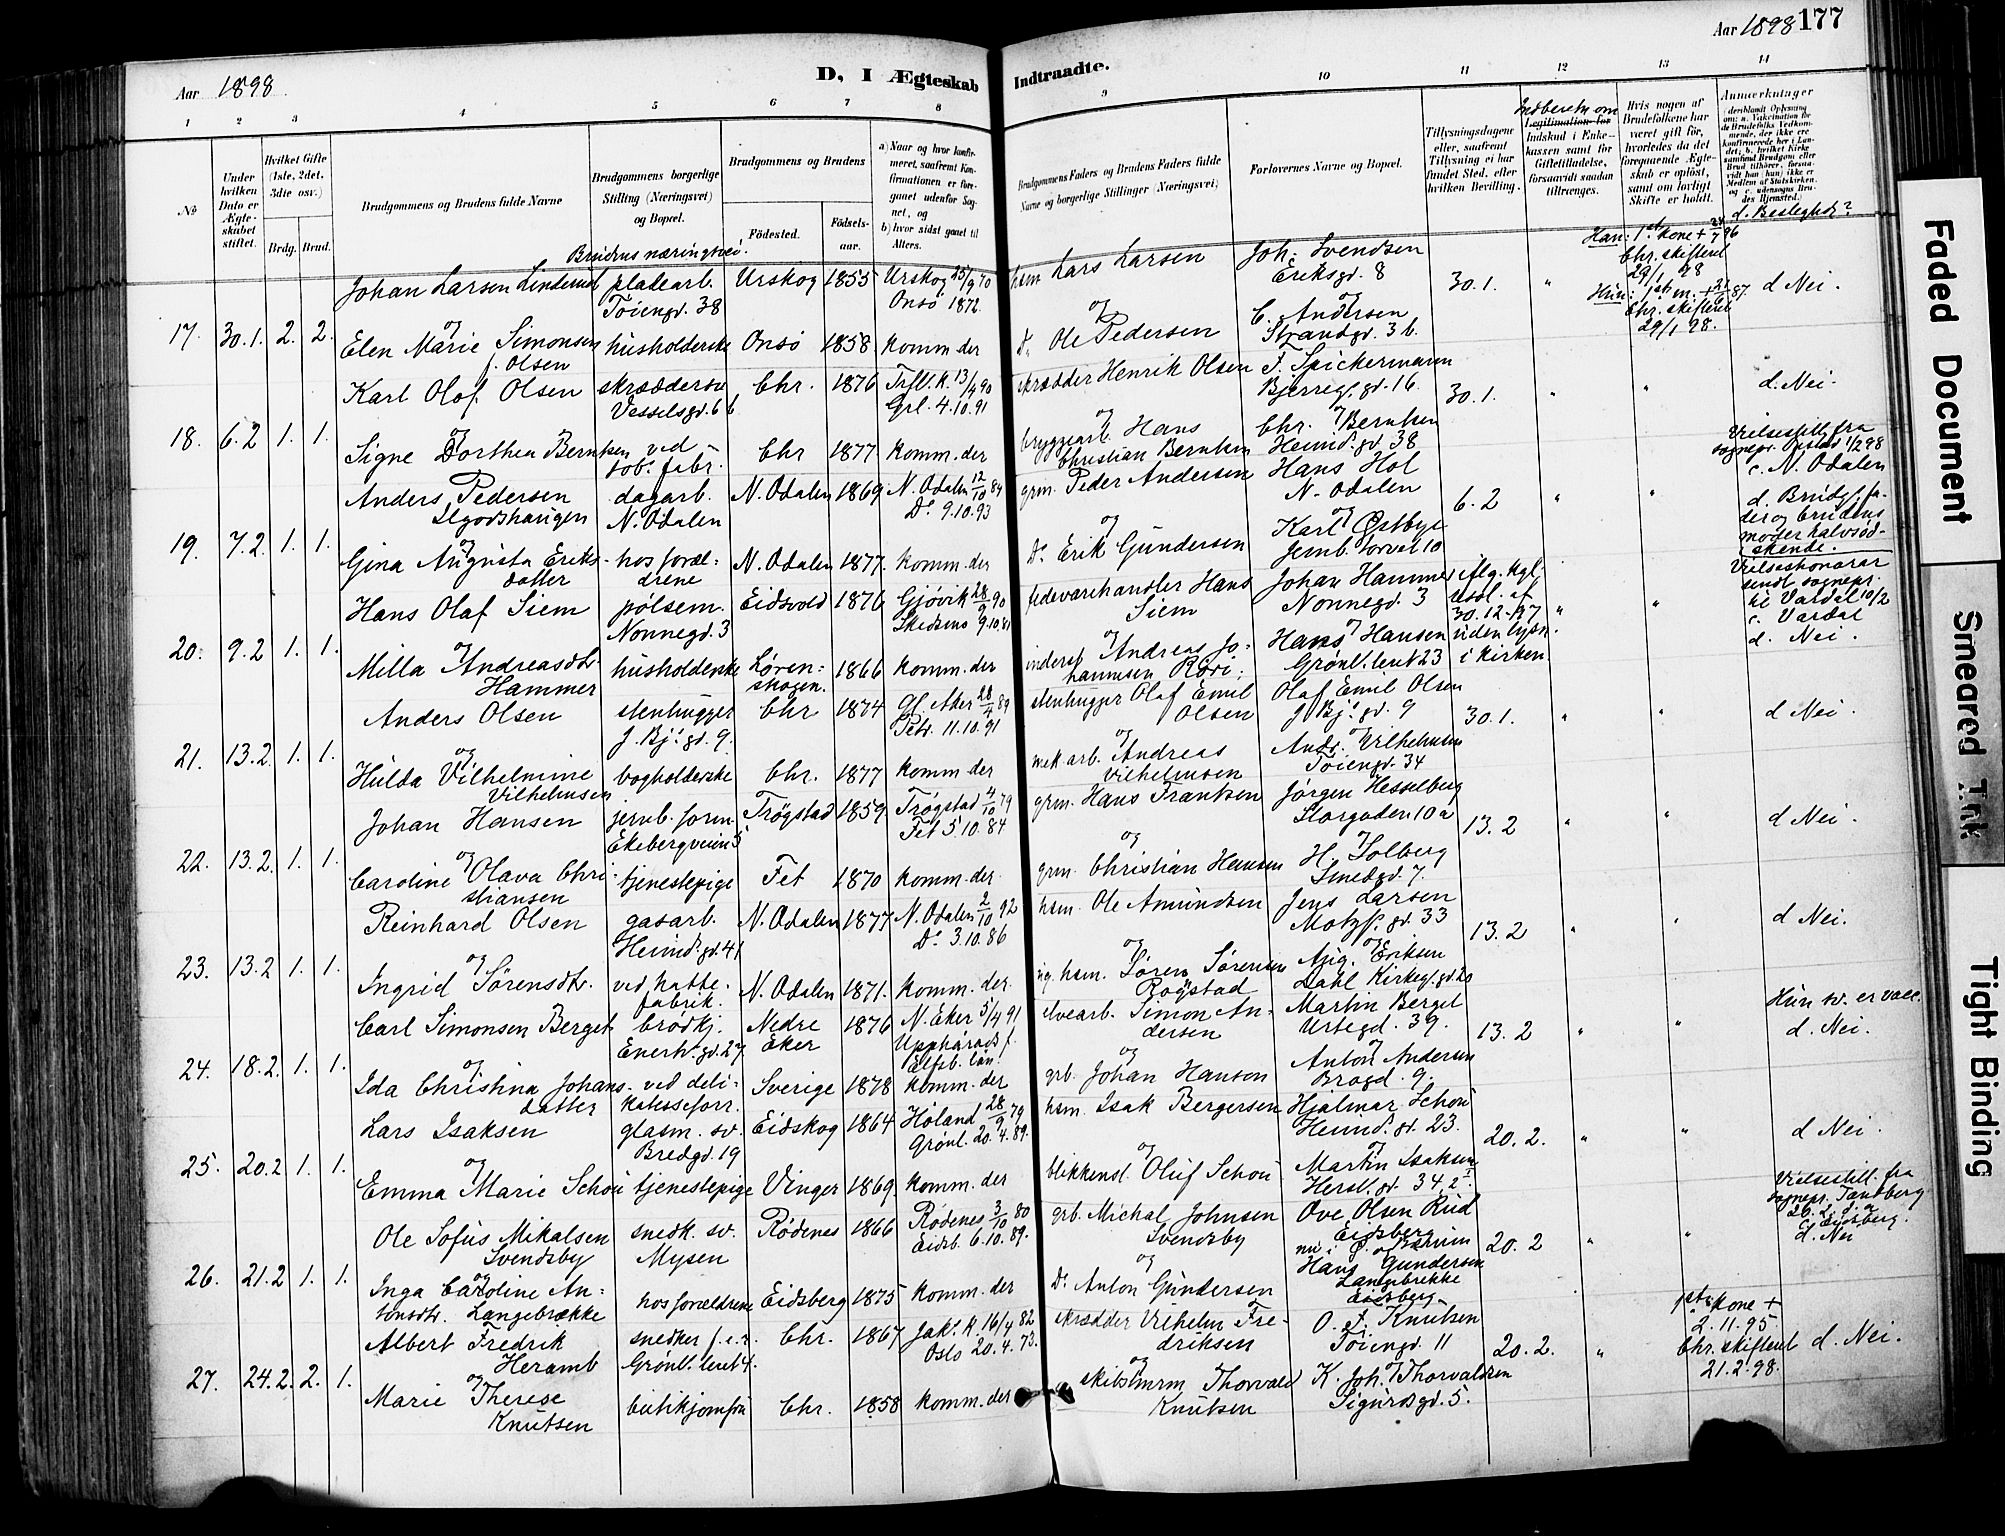 Aar 1898.
D, I Ægteskab Indtraadte.
Aar 1898 177
1 2 3 4 5 6 7 8
9 10 11 12 13 14
No
Under hvilken Dato er Ægteskabet stiftet.
Hvilket Gifte (1ste, 2det, 3die osv.)
Brdg. Brud.
Brudgommens og Brudens fulde Navne
Brudgommens borgerlige Stilling (Næringsvei) og Bopæl.
Brudens næringsvei.
Brudgommens og Brudens
Fødested. Fødselsaar.
a) Naar og hvor konfirmeret, saafremt Konfirmationen er foregaaet udenfor Sognet, og
b) hvor sidst gaaet til Alters.
Brudgommens Faders og Brudens Faders fulde Navne og borgerlige Stillinger (Næringsvei)
Forlovernes Navne og Bopæl.
Tillysningsdagene eller, saafremt Tillysning ei har fundet Sted, efter hvilken Bevilling.
Indberetn om
Legitimation for Indskud i Enkekassen samt for Giftetilladelse, forsaavidt saadan tiltrænges.
Hvis nogen af Brudefolkene har været gift før, hvorledes da det foregaaende Ægteskab er opløst, samt om lovligt Skifte er holdt.
Anmærkninger
d. Beslegtede?
17. 30.1. 2. 2.
Johan Larsen Linderud pladearb. Urskog 1855 Urskog 25/9 70
Töiengd. 38 Onsö 1872.
og
Elen Marie Simonsen husholderske Onsö 1858 komm. der
f. Olsen
hsm Lars Larsen Joh. Svendsen
Eriksgd. 8 30.1. "
og
Do Ole Pedersen C. Andersen
Strandgd. 3 b.
Han: 1ste kone + 24/7 96
Chr. skifteret
29/1 98
Hun: 1ste m. + 21/6 87.
Chr. skifteret
29/1 98.
d Nei.
18. 6.2 1. 1.
Karl Olof Olsen skræddersv Chr. 1876 Trfl. k. 13/4 90
Vesselsgd. 6 b Grl. 4.10.91
og
Signe Dorthea Berntsen ved Chr 1877 komm. der
tob. fabr.
skrædder Henrik Olsen F. Spickermann
Bjerregd. 16 30.1. " "
og
bryggearb. Hans Chr. Berntsen
Christian Berntsen Heimd. gd. 38
d. Nei.
19. 7.2. 1. 1.
Anders Pedersen dagarb. N. Odalen 1869 N. Odalen 12/10 84
N. Odalen Do 9.10.93
og
Gina Augusta Eriksdatter hos forældrene N. Odalen 1877. komm. der
grm. Peder Andersen Hans Hol
N. Odalen 6.2 " "
og
Do Erik Gundersen Karl Østbye
Jernb. torvet 10
Vielsestill. fra
c. N. Odalen
d. Brudg. fader og brudens
moder halvsødskende.
20. 9.2 1. 1.
Hans Olaf Siem pølsem. Eidsvold 1876 Gjøvik 28/9 90
Nonnegd. 3
og
Milla Andreasdtr Hammer husholderske Lørenskogen. 1866 komm. der
fedevarehandler Hans Siem
Johan Hammer
Nonnegd. 3
iflg. kgl. resol. af 30.12.97 uden lysn. i kirken.
og
Andreas Johannesen
Hans Hansen
Grönl. leret 23
Vielseshonorar
sendt sognepr.
til Vardal 10/2
c. Vardal
d. Nei.
21. 13.2. 1. 1.
Anders Olsen stenhugger Chr 1874 Gl. Aker 28/4 89
J. Bj. gd. 9. Petr. 11.10.91
og
Hulda Vilhelmine Vilhelmsen bogholderske Chr. 1877 komm der
stenhugger Olaf Emil Olsen
Olaf Emil Olsen
J. Bj. gd. 9 30.1. " "
og
mek arb. Andreas Vilhelmsen
Andr. Vilhelmsen
Töiengd. 34
d Nei.
22. 13.2. 1. 1.
Johan Hansen jernb. form. Trögstad 1859. Trögstad 4/10 79
Ekebergveien 5 Fet 5.10.84
og
Caroline Olava Christiansen tjenestepige Fet 1870 komm. der
grm. Hans Frantsen Jørgen Hesselberg
Storgaden 10 a 13.2 " "
og
grm. Christian Hansen H. Solberg
Smedgd. 7.
d Nei.
23. 13.2 1. 1.
Reinhard Olsen gasarb. N. Odalen 1877 N. Odalen 2/10 92
Heimd. gd. 41 Do 3.10.86
og
Ingrid Sørensdtr. ved hattefabrik. N. Odalen 1871. komm. der.
hsm. Ole Amundsen Jens Larsen
Motzf. gd. 33 13.2 " "
og
hsm. Søren Sørensen Røgstad
Aug. Eriksen
Dahl Kirkeg. gd. 20
d Nei.
24. 18.2. 1. 1.
Carl Simonsen Berget brödkj. Nedre Eker 1876 N. Eker 5/4 91
Enerh. gd. 27
og
Ida Christina Johansdatter ved delikatesseforr. Sverige 1878 Upphärads f. Elfsb. län.
komm. der
elvearb. Simon Andersen Martin Berget
Urtegd. 39. 13.2 " "
og
grb. Johan Hanson Anton Andersen
Brogd. 9.
Hun sv. er vacc.
d. Nei.
25. 20.2 1. 1.
Lars Isaksen glasm. sv. Eidskog 1864 Höland 28/9 79
Bredgd. 19 Grönl. 20.4.89.
og
Emma Marie Schou tjenestepige Vinger 1869 komm. der
hsm. Isak Bergersen Hjalmar Schou
Heimd. gd. 23. 20.2. " "
og
blikkensl. Oluf Schou Martin Isaksen
Hersl. gd. 34.
d Nei.
26. 21.2 1. 1.
Ole Sofus Mikalsen Svendsby snedk. sv. Mysen Rödenes 1866 Rödenes 3/10 80
Eidsb. 6.10.89.
og
Inga Caroline Antonsdtr. Langebrække hos forældrene Eidsberg 1875 komm. der
grb. Michal Johnsen Svendsby
Ove Olsen Rud
Eidsberg 20.2 " "
og
Do Anton Gundersen Hans Gundersen
Langebrekke
Eidsberg
Vielsestill. fra
sognepr. Tandberg
Eidsberg.
d. Nei
27. 24.2. 2. 1.
Albert Fredrik Heramb snedker f. e. r. Chr. 1867 Jak. k. 16/4 82
Grönl. leret 4. Oslo 20.4.73.
og
Marie Therese Knutsen butikjomfru Chr. 1858 komm. der
skrædder Vilhelm Fredriksen
O. F. Knutsen
Töiengd. 11 20.2. "
og
skibstmrm Thorvald Knutsen
K. Joh. Thorvaldsen
Sigurdsgd. 5.
1ste kone +
2.11.95.
Chr. skifteret
21.2.98.
d. Nei.
Faded Document
Smeared Ink
Tight Binding